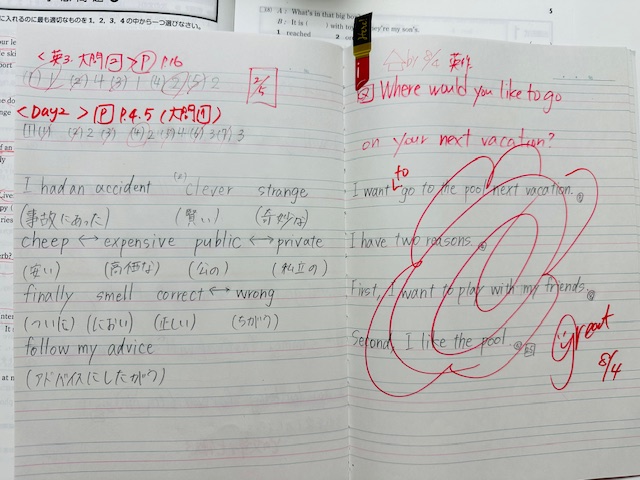 に入れるのに最も適切なものを1, 2, 3, 4の中から一つ選びなさい。
A: What's in that big bo
B: It is ( ) with to they're my son's.
1 reached 2
<英3. 大門2> P P.16
(1) 1 (2) 4 (3) 1 (4) 2 (5) 2
2/5
<Day2> P P.4.5 (大門1)
I had an accident clever strange
(事故にあった) (賢い) (奇妙な)
cheep ↔ expensive public ↔ private
(安い) (高価な) (公の) (私立の)
finally smell correct ↔ wrong
(ついに) (におい) (正しい) (ちがう)
follow my advice
(アドバイスにしたがう)
英作
Where would you like to go
on your next vacation?
to
I want go to the pool next vacation.
I have two reasons.
First, I want to play with my friends.
Second, I like the pool.
great
8/4